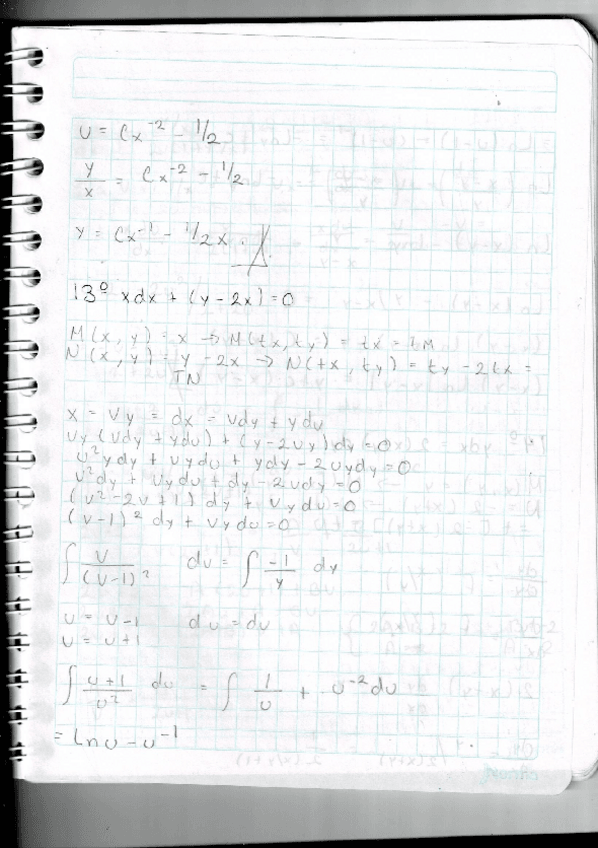 u = Cx^-2 - 1/2
y/x = Cx^-2 - 1/2
y = Cx^-1 - 1/2 x.
13º xdx + (y - 2x) = 0
M(x, y) = x → M(tx, ty) = tx = tM
N(x, y) = y - 2x → N(tx, ty) = ty - 2tx =
TN
x = vy = dx = vdy + ydv
vy (vdy + ydv) + (y - 2vy) dy = 0
v²ydy + vydv + ydy - 2vydy = 0
v²dy + vydv + dy - 2vdy = 0
(v² - 2v + 1) dy + vydv = 0
(v - 1)² dy + vydv = 0
∫ v/(v-1)² dv = ∫ -1/y dy
u = v - 1 du = dv
v = u + 1
∫ (u+1)/u² du = ∫ 1/u + u^-2 du
= Ln u - u^-1